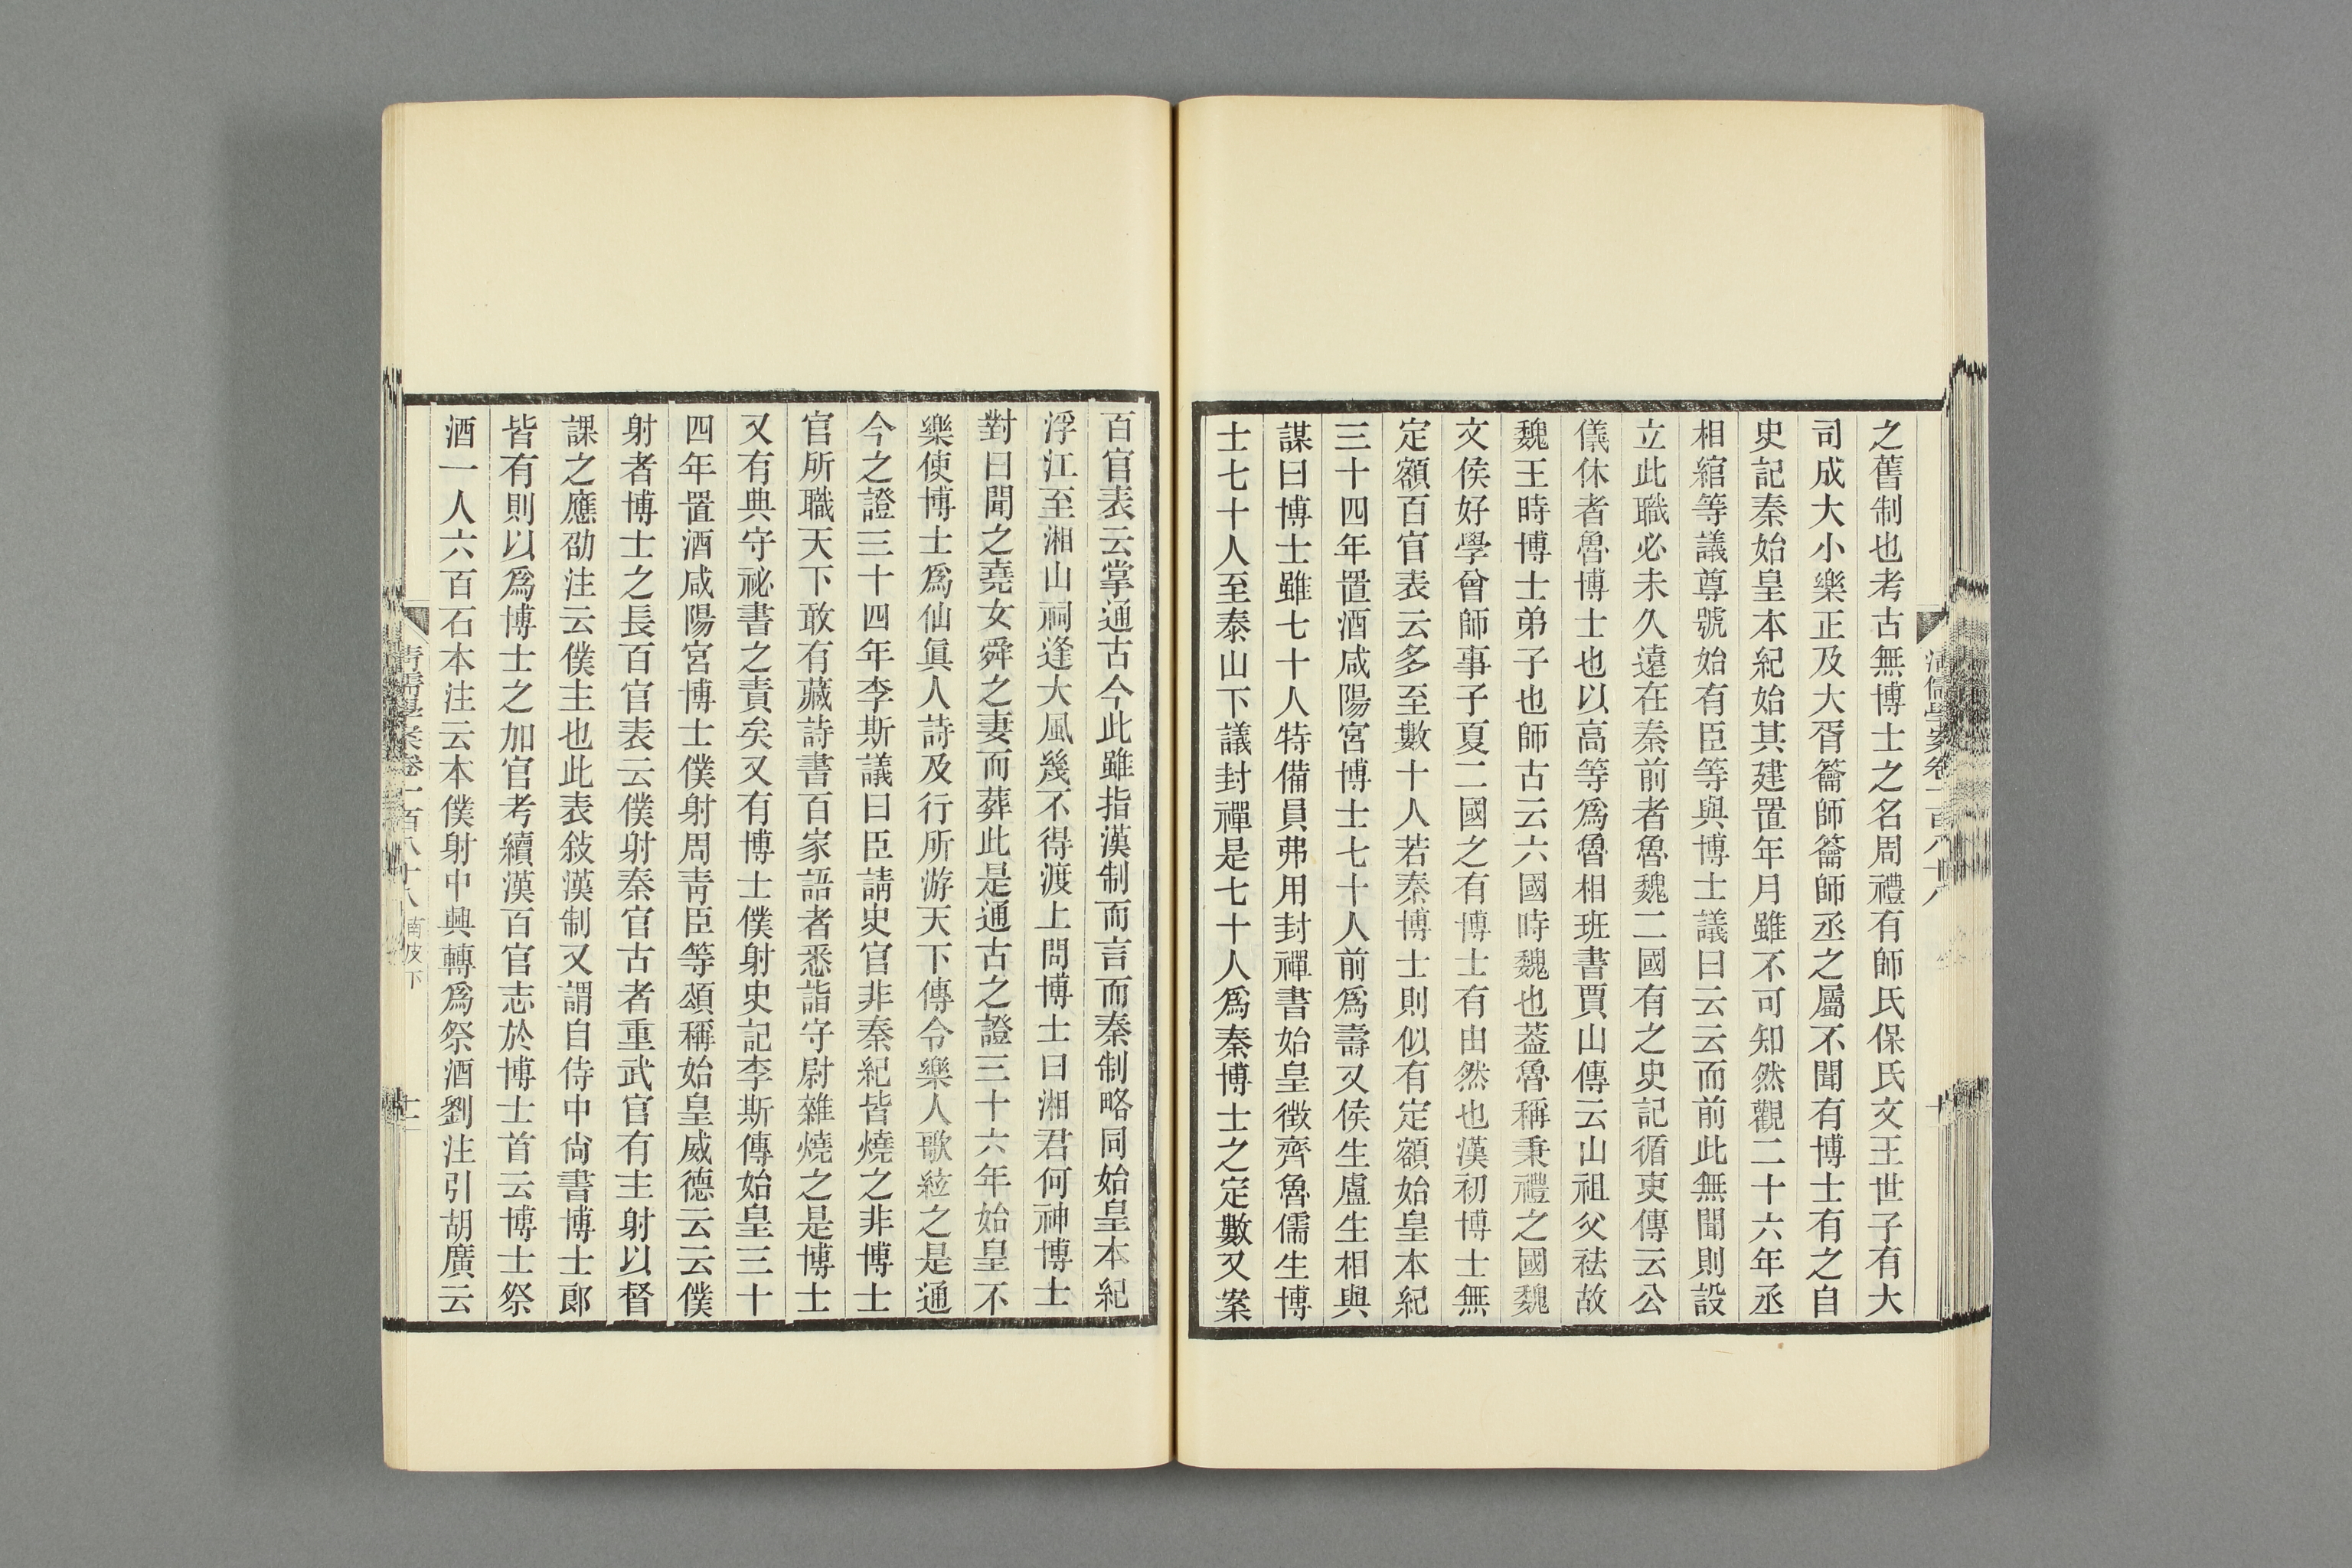 之舊制也考古無博士之名周禮有師氏保氏文王世子有大
司成大小樂正及大胥籥師籥師丞之屬不聞有博士有之自
史記秦始皇本紀始其建置年月雖不可知然觀二十六年丞
相綰等議尊號始有臣等與博士議曰云云而前此無聞則設
立此職必未久遠在秦前者魯魏二國有之史記循吏傳云公
儀休者魯博士也以高等爲魯相班書賈山傳云山祖父祛故
魏王時博士弟子也師古云六國時魏也葢魯稱秉禮之國魏
文侯好學曾師事子夏二國之有博士有由然也漢初博士無
定額百官表云多至數十人若秦博士則似有定額始皇本紀
三十四年置酒咸陽宮博士七十人前爲壽又侯生盧生相與
謀曰博士雖七十人特備員弗用封禪書始皇徵齊魯儒生博
士七十人至泰山下議封禪是七十人爲秦博士之定數又案
百官表云掌通古今此雖指漢制而言而秦制略同始皇本紀
浮江至湘山祠逢大風幾不得渡上問博士曰湘君何神博士
對曰聞之堯女舜之妻而葬此是通古之證三十六年始皇不
樂使博士爲仙眞人詩及行所游天下傳令樂人歌絃之是通
今之證三十四年李斯議曰臣請史官非秦紀皆燒之非博士
官所職天下敢有藏詩書百家語者悉詣守尉雜燒之是博士
又有典守祕書之責矣又有博士僕射史記李斯傳始皇三十
四年置酒咸陽宮博士僕射周靑臣等頌稱始皇威德云云僕
射者博士之長百官表云僕射秦官古者重武官有主射以督
課之應劭注云僕主也此表敍漢制又謂自侍中尙書博士郎
皆有則以爲博士之加官考續漢百官志於博士首云博士祭
酒一人六百石本注云本僕射中興轉爲祭酒劉注引胡廣云
清儒學案卷一百八十八 南皮下 十一